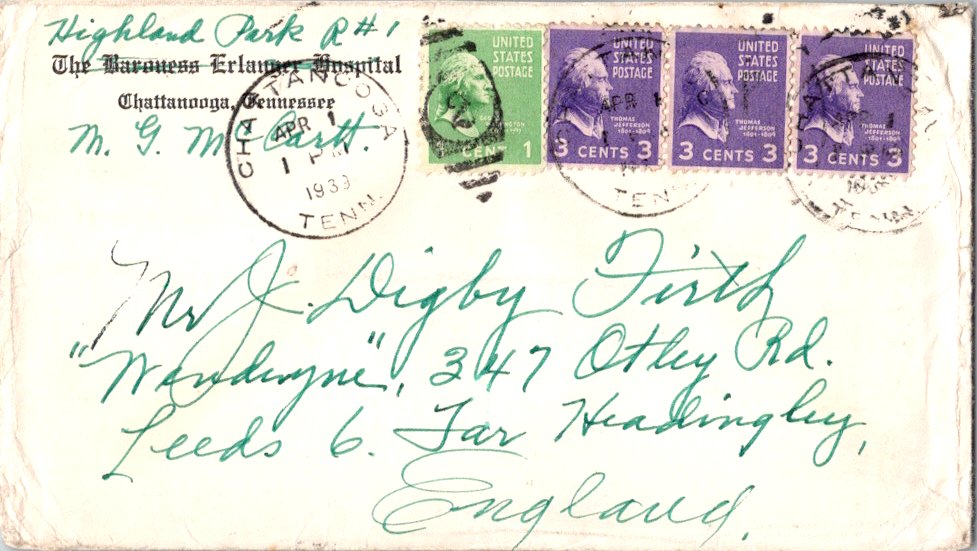 Highland Park R#1
The Baroness Erlanger Hospital
Chattanooga, Tennessee
M. G. McCartt.
CHATTANOOGA
APR 1
1 PM
1939
TENN.
UNITED
STATES
POSTAGE
1 CENT 1
UNITED
STATES
POSTAGE
THOMAS
JEFFERSON
1801-1809
3 CENTS 3
UNITED
STATES
POSTAGE
THOMAS
JEFFERSON
1801-1809
3 CENTS 3
UNITED
STATES
POSTAGE
THOMAS
JEFFERSON
1801-1809
3 CENTS 3
APR 1
TENN
TENN
Mr J. Digby Firth
"Wendwyne", 347 Otley Rd.
Leeds 6. Far Headingley,
England.